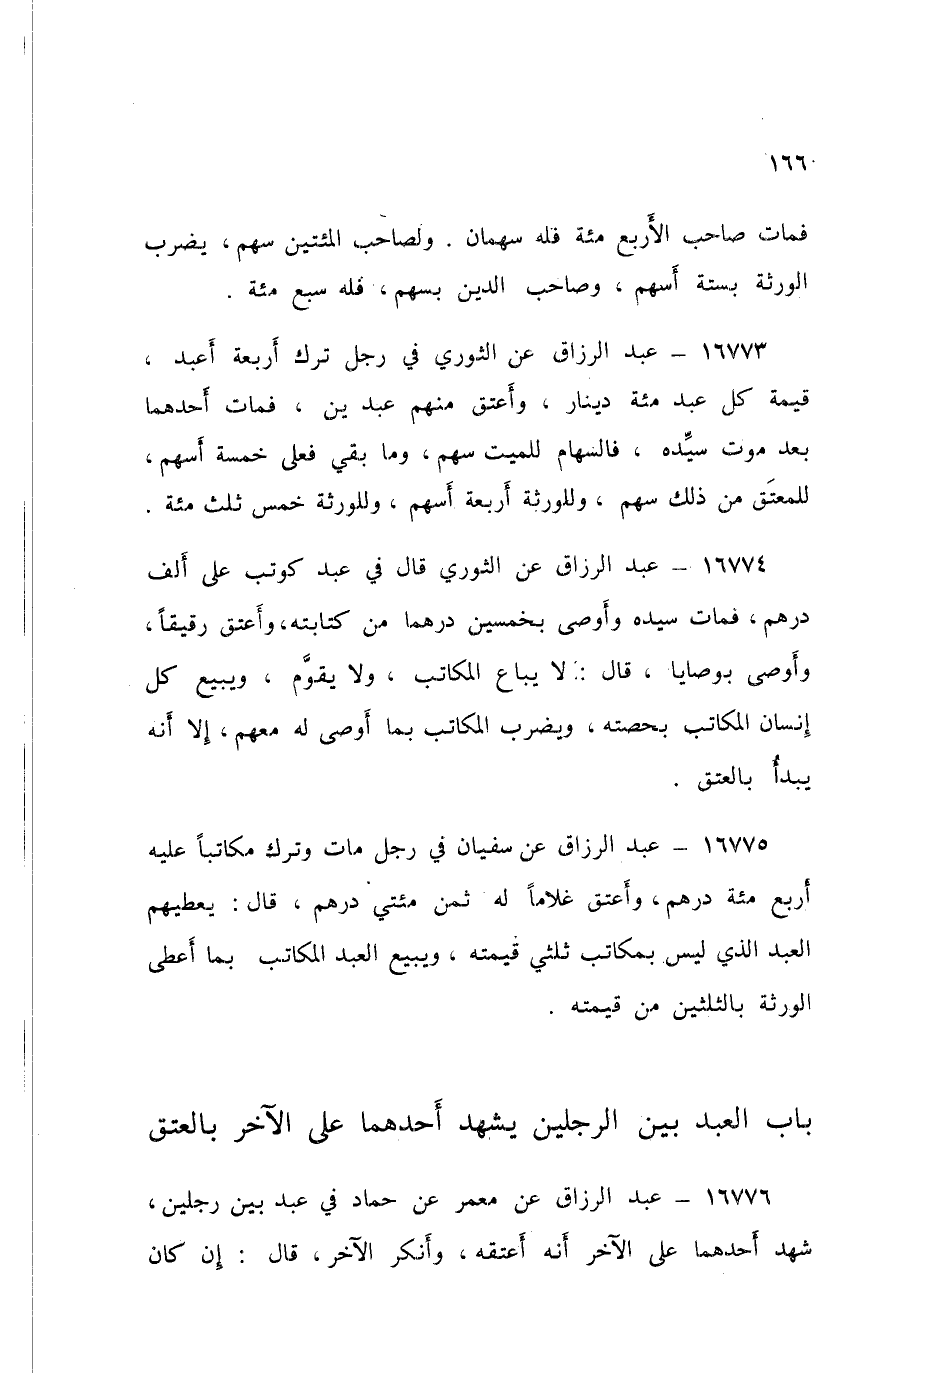 ١٦٦
فمات صاحب الأَربع مئة فله سهمان . ولصاحب المئتين سهم ، يضرب
الورثة بستة أَسهم ، وصاحب الدين بسهم ، فله سبع مئة .
١٦٧٧٣ – عبد الرزاق عن الثوري في رجل ترك أَربعة أَعبد ،
قيمة كل عبد مئة دينار ، وأَعتق منهم عبدين ، فمات أَحدهما
بعد موت سيِّده ، فالسهام للميت سهم ، وما بقي فعلى خمسة أَسهم ،
للمعتَق من ذلك سهم ، وللورثة أَربعة أَسهم ، وللورثة خمس ثلث مئة .
١٦٧٧٤ – عبد الرزاق عن الثوري قال في عبد كوتب على أَلف
درهم ، فمات سيده وأَوصى بخمسين درهما من كتابته ، وأَعتق رقيقاً ،
وأَوصى بوصايا ، قال : لا يباع المكاتب ، ولا يقوَّم ، ويبيع كل
إنسان المكاتب بحصته ، ويضرب المكاتب بما أَوصى له معهم ، إلا أَنه
يبدأُ بالعتق .
١٦٧٧٥ – عبد الرزاق عن سفيان في رجل مات وترك مكاتباً عليه
أَربع مئة درهم ، وأَعتق غلاماً له ثمن مئتي درهم ، قال : يعطيهم
العبد الذي ليس بمكاتب ثلثي قيمته ، ويبيع العبد المكاتب بما أَعطى
الورثة بالثلثين من قيمته .
باب العبد بين الرجلين يشهد أَحدهما على الآخر بالعتق
١٦٧٧٦ – عبد الرزاق عن معمر عن حماد في عبد بين رجلين ،
شهد أَحدهما على الآخر أَنه أَعتقه ، وأَنكر الآخر ، قال : إن كان